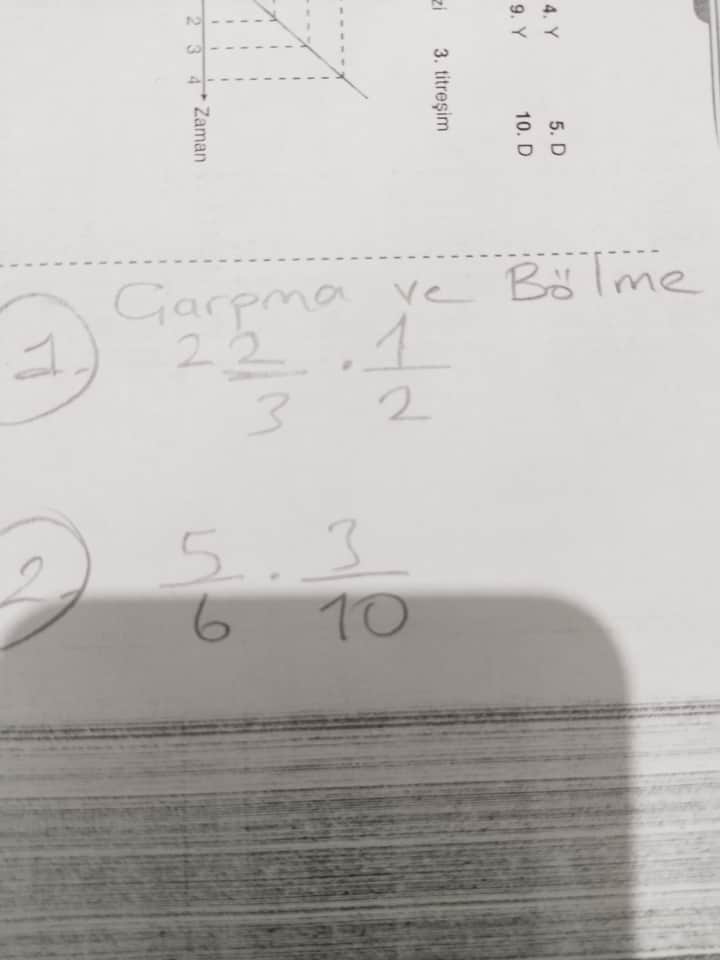 4. Y 5. D
9. Y 10. D
3. titreşim
2 3 4 Zaman
Çarpma ve Bölme
1. 2 2/3 · 1/2
2. 5/6 · 3/10